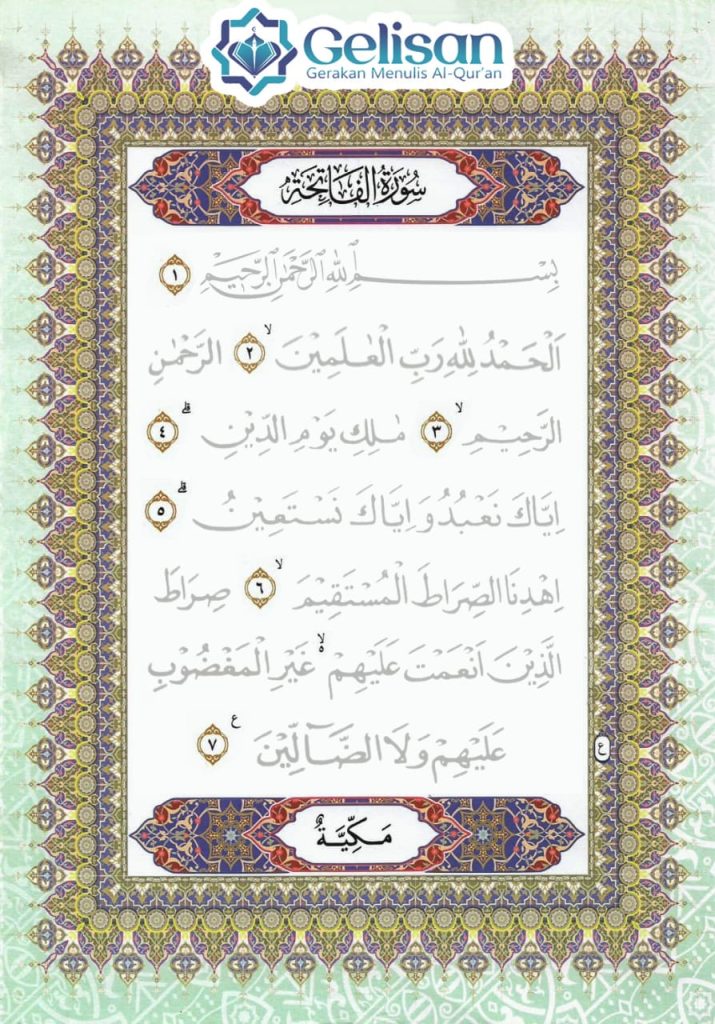 Gelisan
Gerakan Menulis Al-Qur'an
سُوْرَةُ الْفَاتِحَةِ
بِسْمِ اللّٰهِ الرَّحْمٰنِ الرَّحِيْمِ ١
اَلْحَمْدُ لِلّٰهِ رَبِّ الْعٰلَمِيْنَۙ ٢ الرَّحْمٰنِ
الرَّحِيْمِۙ ٣ مٰلِكِ يَوْمِ الدِّيْنِۗ ٤
اِيَّاكَ نَعْبُدُ وَاِيَّاكَ نَسْتَعِيْنُۗ ٥
اِهْدِنَا الصِّرَاطَ الْمُسْتَقِيْمَۙ ٦ صِرَاطَ
الَّذِيْنَ اَنْعَمْتَ عَلَيْهِمْ ەۙ غَيْرِ الْمَغْضُوْبِ
عَلَيْهِمْ وَلَا الضَّاۤلِّيْنَ ع ٧
ع
مَكِّيَّةٌ